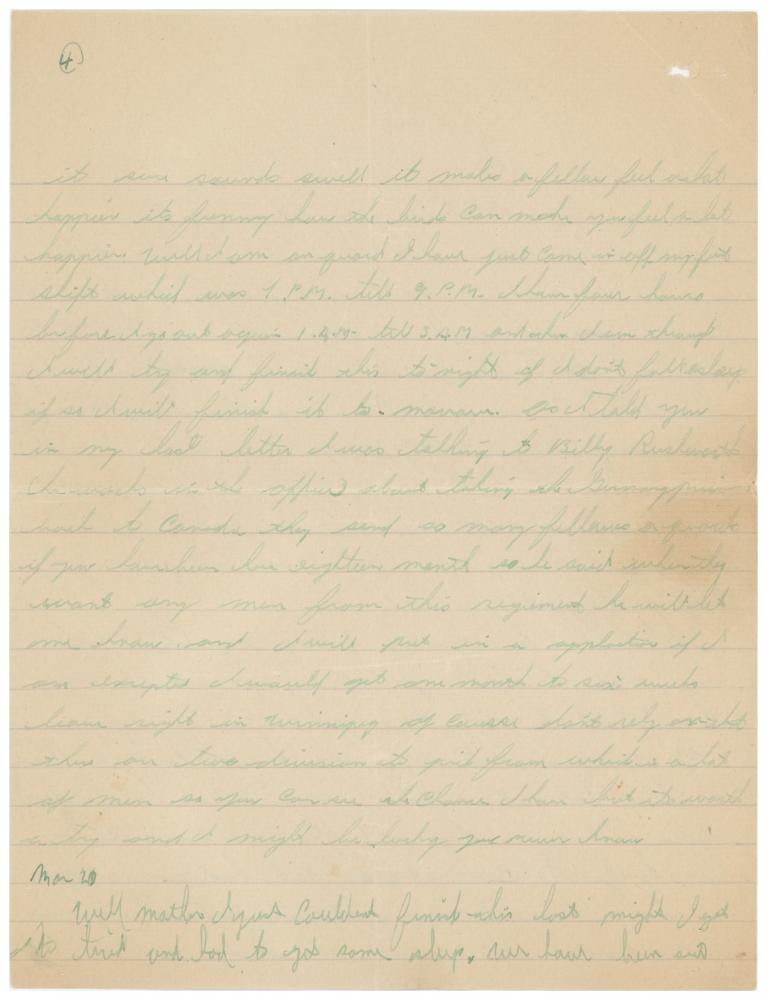 4
it sure sounds swell it makes a fellow feel a lot
happier it's funny how the birds can make you feel a lot
happier. Well I am on guard I have just come in off my first
shift which was 7 P.M. till 9 P.M. I have four hours
before I go out again 1 A.M. till 3 A.M and then I am through
I will try and finish this to-night if I don't fall asleep
if so I will finish it to-morrow. As I told you
in my last letter I was talking to Billy Rushworth
he works in the office about taking the German prisoners
back to Canada they send so many fellows a guard
if you have been here eighteen month so he said when they
want any men from this regiement he will let
me know and I will put in a application if I
am excepted I would get one month to six weeks
leave right in Winnipeg of causse don't rely on that
there are two division to pick from which is a lot
of men so you can see the chance I have but its worth
a try and I might be lucky you never know
Mar 20
Well mother I just couldent finish this last night I got
to tired and had to get some sleep. We have been out